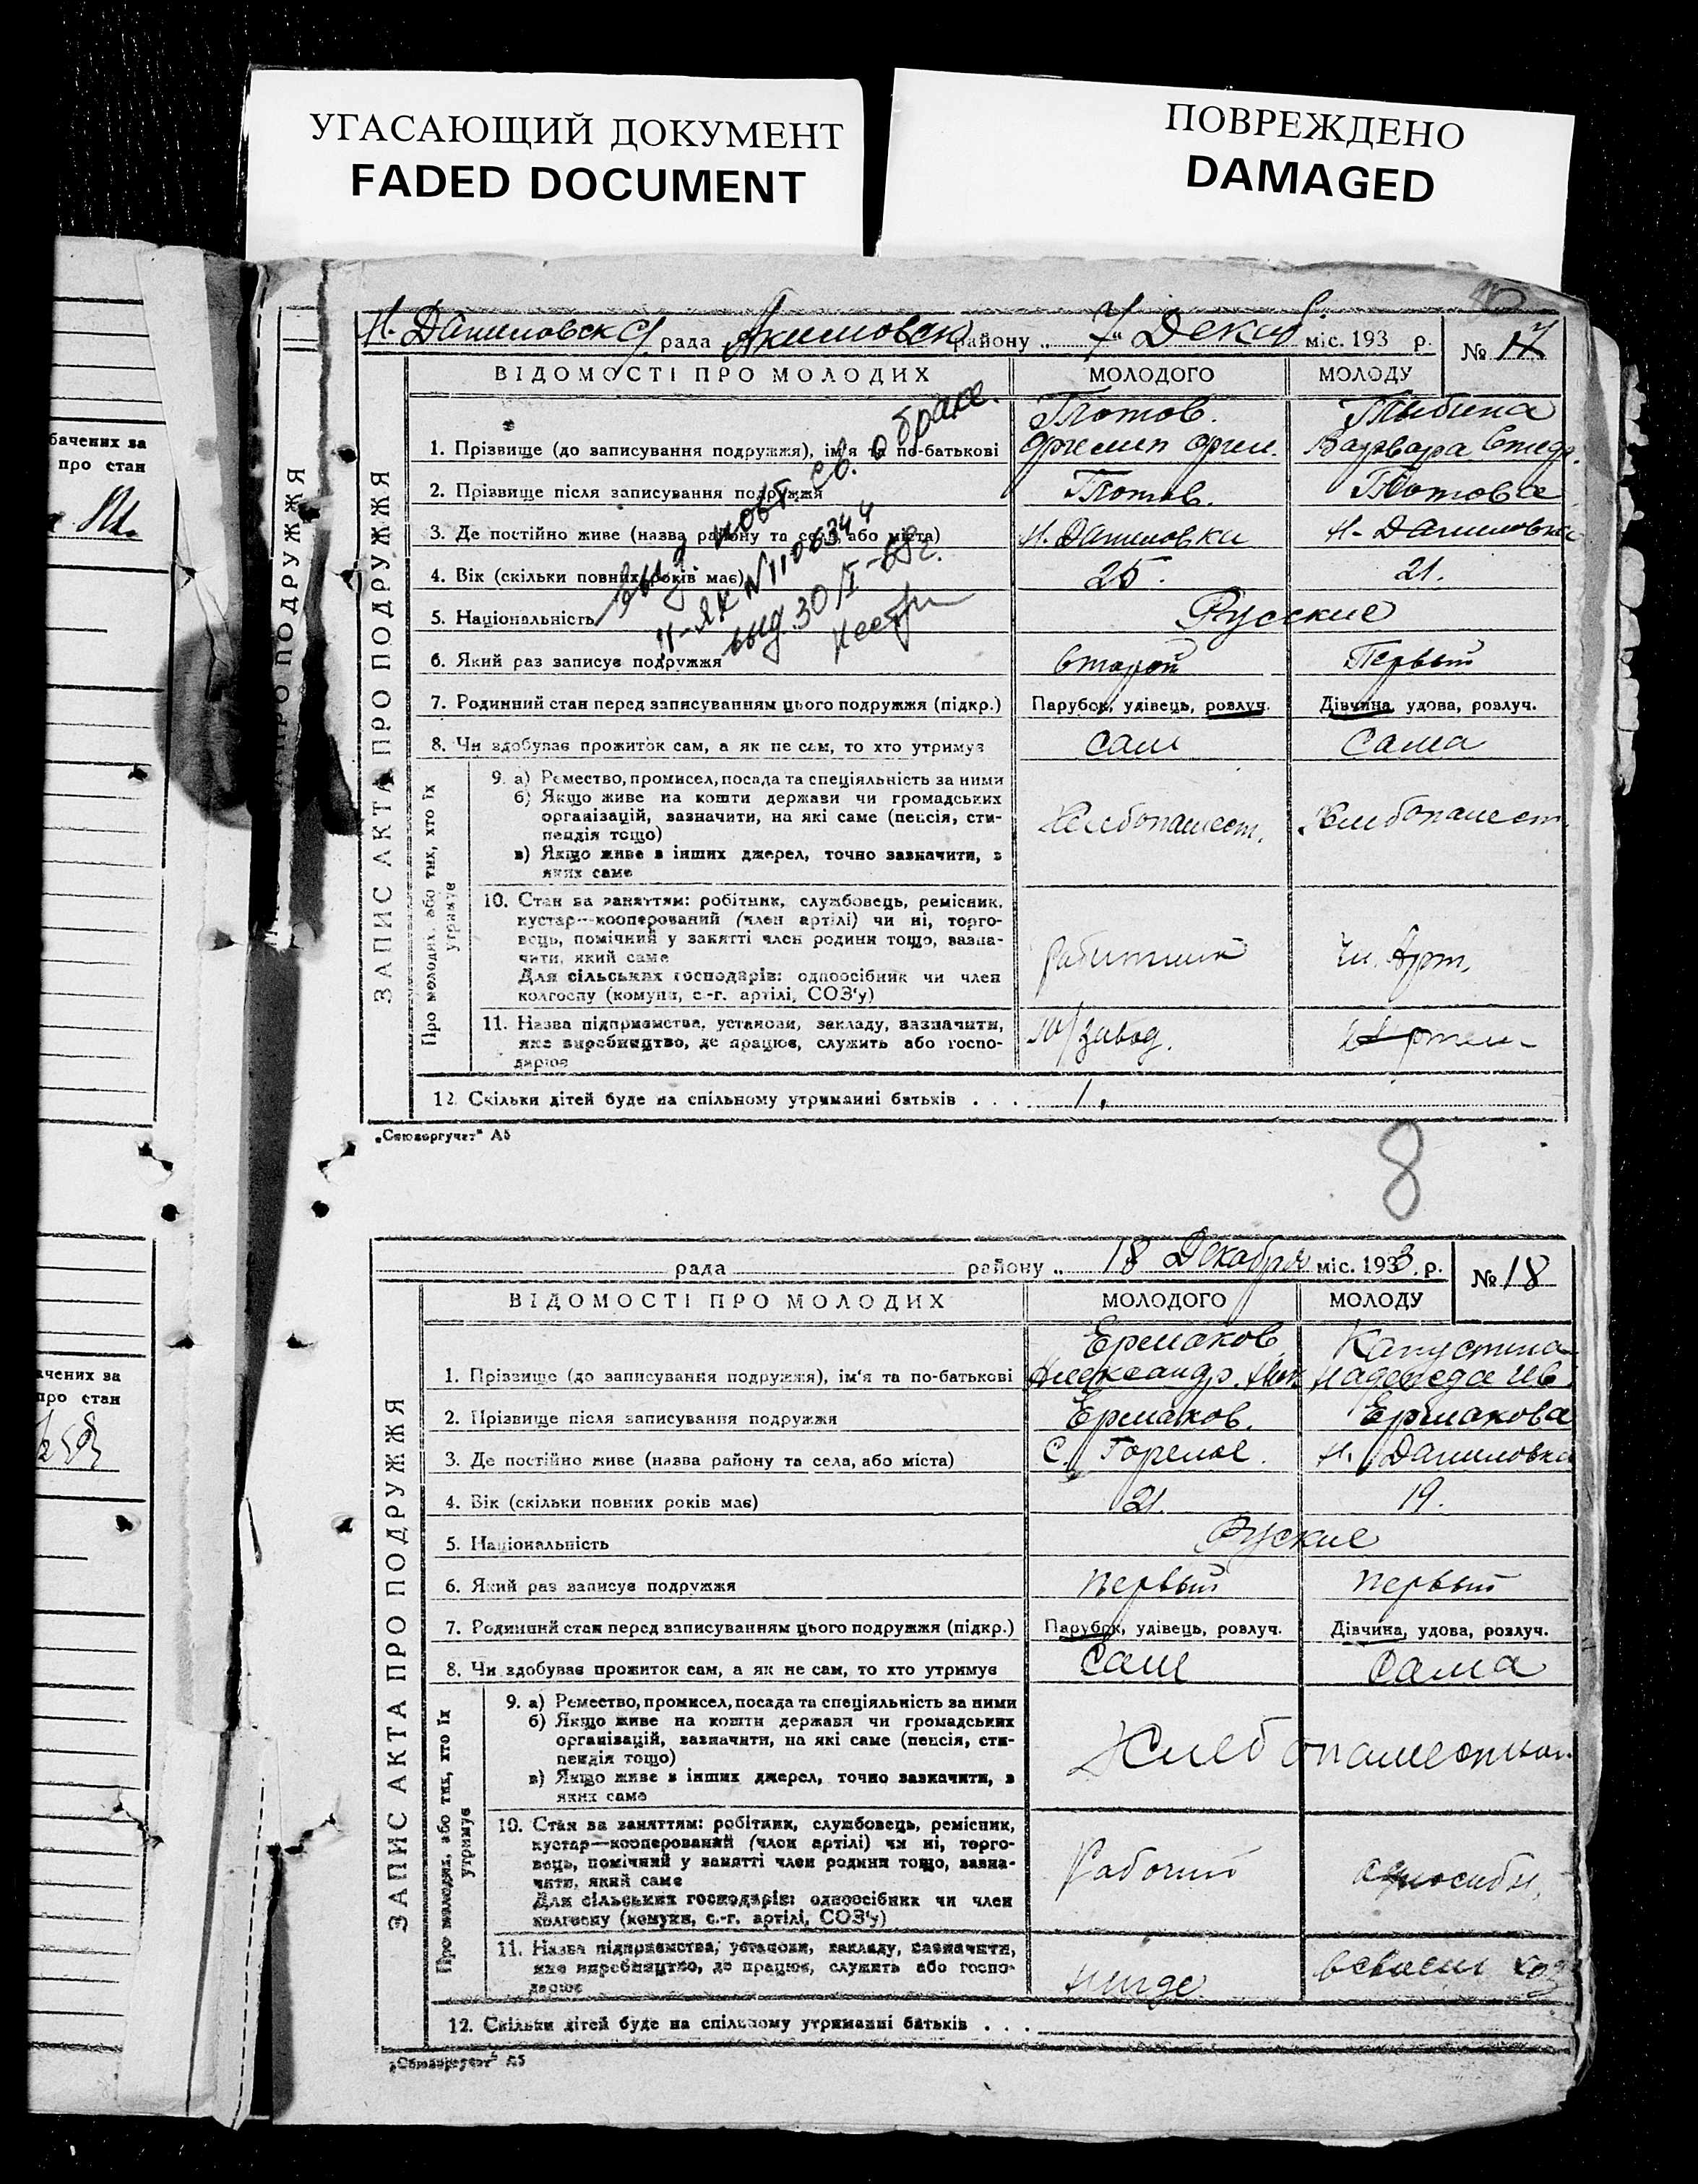 УГАСАЮЩИЙ ДОКУМЕНТ
FADED DOCUMENT
ПОВРЕЖДЕНО
DAMAGED
бачених за
про стан
ачених за
про стан
ЗАПИС АКТА ПРО ПОДРУЖЖЯ
Н. Даниловск рада Акимовск району „ 7 " Декаб. міс. 193 р. № 17
ВІДОМОСТІ ПРО МОЛОДИХ МОЛОДОГО МОЛОДУ
1. Прізвище (до записування подружжя), ім'я та по-батькові
Варвара
2. Прізвище після записування подружжя
3. Де постійно живе (назва району та села, або міста) Н. Даниловка Н-Даниловка
4. Вік (скільки повних років має) 25. 21.
5. Національність Русские
6. Який раз записує подружжя второй Первый
7. Родинний стан перед записуванням цього подружжя (підкр.) Парубок, удівець, розлуч. Дівчина, удова, розлуч.
8. Чи здобуває прожиток сам, а як не сам, то хто утримує сам Сама
Про молодих, або тих, хто їх утримує
9. а) Ремество, промисел, посада та спеціяльність за ними
б) Якщо живе на кошти держави чи громадських
організацій, зазначити, на які саме (пенсія, сти-
пендія тощо) Хлебопашест. Хлебопашест.
в) Якщо живе з інших джерел, точно зазначити, з
яких саме
10. Стан за заняттям: робітник, службовець, ремісник,
кустар—кооперований (член артілі) чи ні, торго-
вець, помічний у занятті член родини тощо, зазна-
чити, який саме чл. Арт.
Для сільських господарів: одноосібник чи член
колгоспу (комуни, с.-г. артілі, СОЗ'у)
11. Назва підприємства, установи, закладу, зазначити,
яке виробництво, де працює, служить або госпо- завод. в Артели
дарює
12. Скільки дітей буде на спільному утриманні батьків . . . 1.
выд повт. св. о браке.
II-ЯК N 1106344
выд. 30/I-68г.
„Союзоргучет" А5
8
ЗАПИС АКТА ПРО ПОДРУЖЖЯ
рада району „ 18 Декабря міс. 1933 р. № 18
ВІДОМОСТІ ПРО МОЛОДИХ МОЛОДОГО МОЛОДУ
Ермаков Капустина
1. Прізвище (до записування подружжя), ім'я та по-батькові Александр. Ник Надежда Ив.
2. Прізвище після записування подружжя Ермаков. Ермакова
3. Де постійно живе (назва району та села, або міста) С. Горелое. Н. Даниловка
4. Вік (скільки повних років має) 21. 19.
5. Національність Руские
6. Який раз записує подружжя первый первый
7. Родинний стан перед записуванням цього подружжя (підкр.) Парубок, удівець, розлуч. Дівчина, удова, розлуч.
8. Чи здобуває прожиток сам, а як не сам, то хто утримує Сам Сама
Про молодих, або тих, хто їх утримує
9. а) Ремество, промисел, посада та спеціяльність за ними
б) Якщо живе на кошти держави чи громадських
організацій, зазначити, на які саме (пенсія, сти-
пендія тощо)
в) Якщо живе з інших джерел, точно зазначити, з
яких саме
10. Стан за заняттям: робітник, службовець, ремісник,
кустар—кооперований (член артілі) чи ні, торго-
вець, помічний у занятті член родини тощо, зазна-
чити, який саме Рабочий
Для сільських господарів: одноосібник чи член
колгоспу (комуни, с.-г. артілі, СОЗ'у)
11. Назва підприємства, установи, закладу, зазначити,
яке виробництво, де працює, служить або госпо- нигде в своем хоз
дарює
12. Скільки дітей буде на спільному утриманні батьків . . .
„Союзоргучет" А5